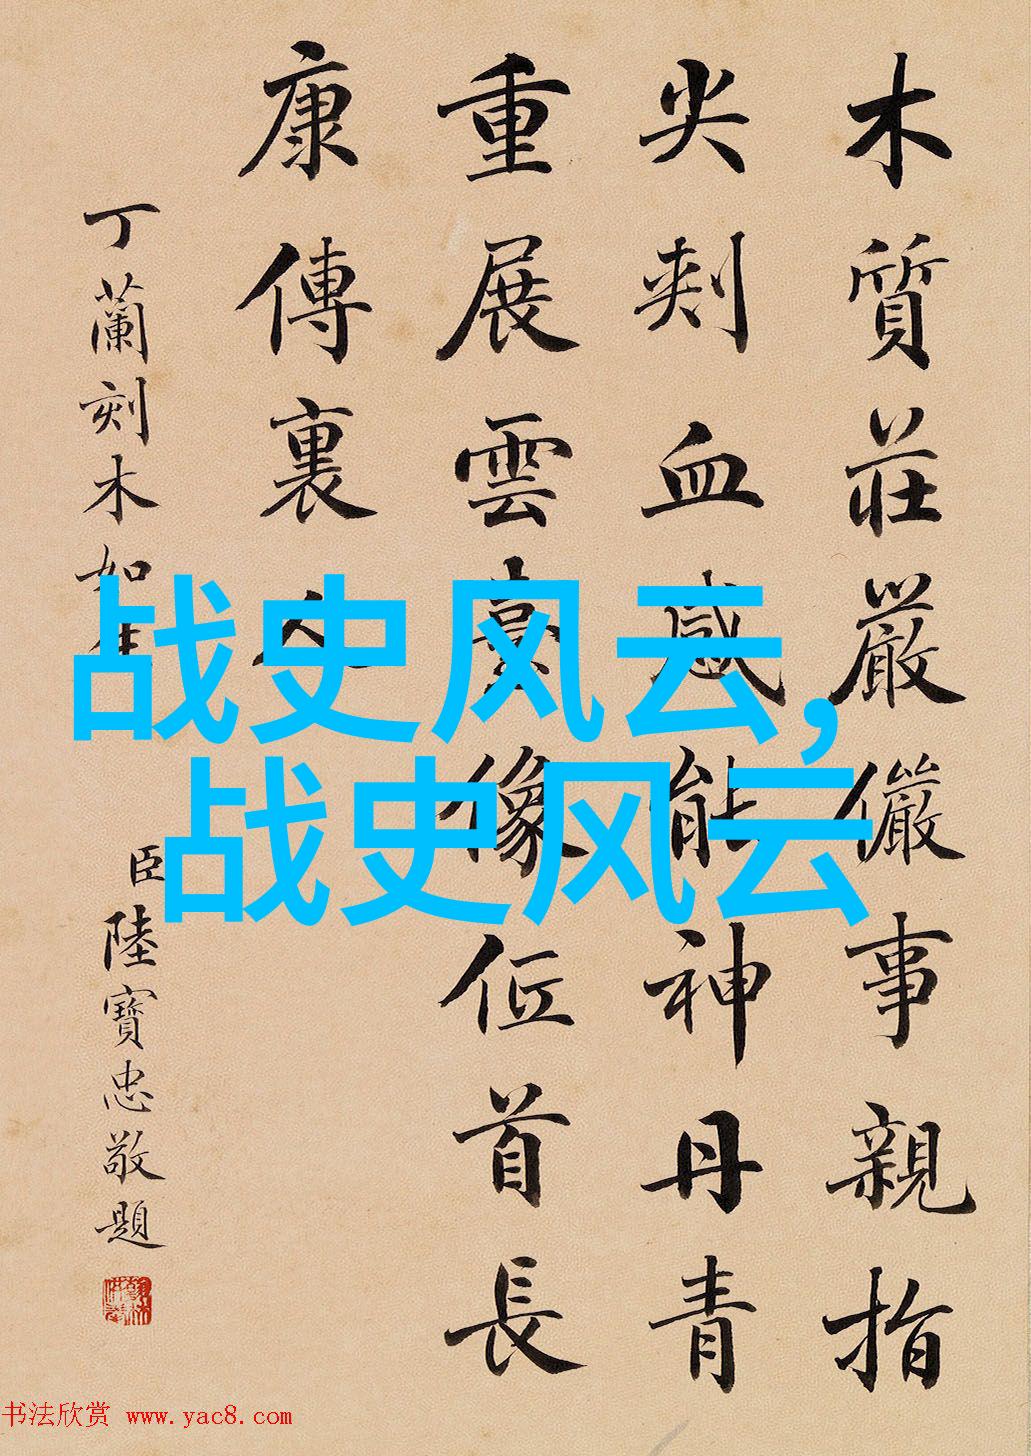 木質莊嚴儼事親指
尖刾血感能神丹青
重展雲臺像位首長
康傳裏人
丁蘭刻木如生
臣陸寶忠敬題
战史风云,
战史风云
书法欣赏 www.yac8.com